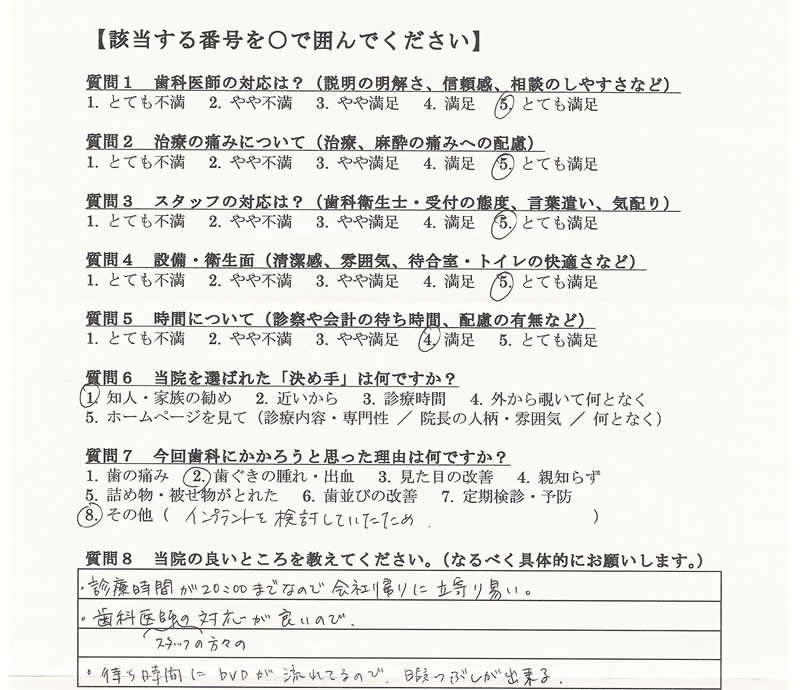 【該当する番号を○で囲んでください】
質問1 歯科医師の対応は?（説明の明解さ、信頼感、相談のしやすさなど）
1. とても不満 2. やや不満 3. やや満足 4. 満足 5. とても満足
質問2 治療の痛みについて（治療、麻酔の痛みへの配慮）
1. とても不満 2. やや不満 3. やや満足 4. 満足 5. とても満足
質問3 スタッフの対応は?（歯科衛生士・受付の態度、言葉遣い、気配り）
1. とても不満 2. やや不満 3. やや満足 4. 満足 5. とても満足
質問4 設備・衛生面（清潔感、雰囲気、待合室・トイレの快適さなど）
1. とても不満 2. やや不満 3. やや満足 4. 満足 5. とても満足
質問5 時間について（診察や会計の待ち時間、配慮の有無など）
1. とても不満 2. やや不満 3. やや満足 4. 満足 5. とても満足
質問6 当院を選ばれた「決め手」は何ですか?
1. 知人・家族の勧め 2. 近いから 3. 診療時間 4. 外から覗いて何となく
5. ホームページを見て（診療内容・専門性 ／ 院長の人柄・雰囲気 ／ 何となく）
質問7 今回歯科にかかろうと思った理由は何ですか?
1. 歯の痛み 2. 歯ぐきの腫れ・出血 3. 見た目の改善 4. 親知らず
5. 詰め物・被せ物がとれた 6. 歯並びの改善 7. 定期検診・予防
8. その他（ インプラントを検討していたため. ）
質問8 当院の良いところを教えてください。（なるべく具体的にお願いします。）
・診療時間が20:00までなので会社帰りに立寄り易い。
・歯科医師の対応が良いので.
スタッフの方々の
・待ち時間にDVDが流れてるので、暇つぶしが出来る.